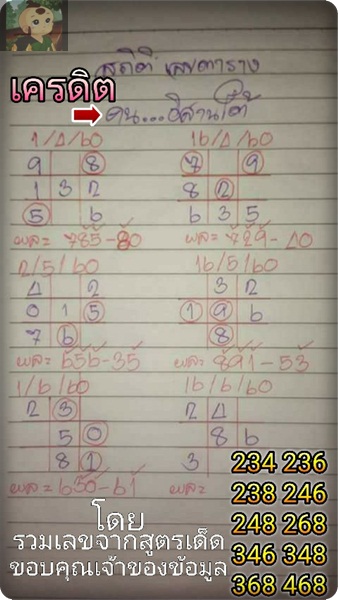 สถิติ เลขตาราง
เครดิต
คน...อีสานใต้
1/4/60
9 8
1 3 2
5 6
ผล = 785-80
16/4/60
7 9
8 2
6 3 5
ผล = 729-40
2/5/60
4 2
0 1 5
7 6
ผล = 656-35
16/5/60
3 2
1 9 6
8
ผล = 891-53
1/6/60
2 3
5 0
8 1
ผล = 650-61
16/6/60
2 4
8 6
3
ผล =
234 236
238 246
248 268
346 348
368 468
โดย
รวมเลขจากสูตรเด็ด
ขอบคุณเจ้าของข้อมูล